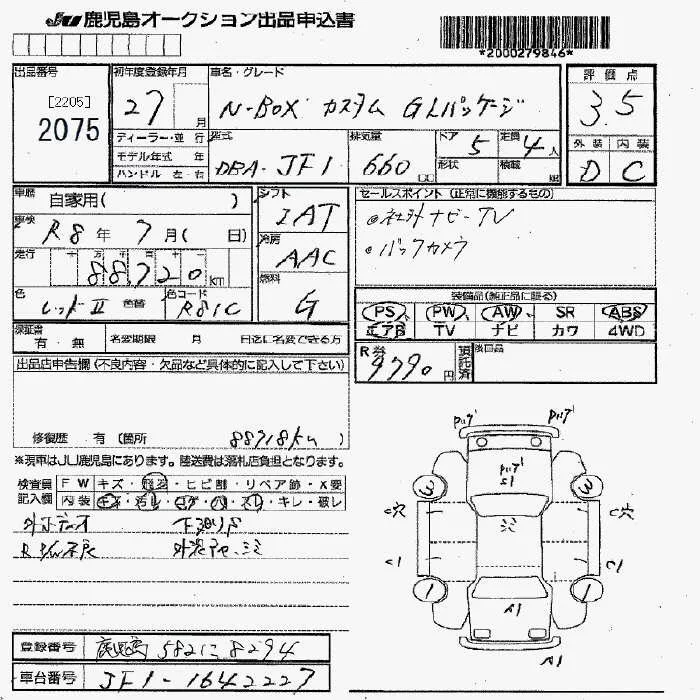 JU鹿児島オークション出品申込書
*2000279846*
出品番号
[2205]
2075
初年度登録年月
27 月
ディーラー・並 行
モデル年式 年
ハンドル 左 右
車名・グレード
N-BOX カスタム GLパッケージ
型式
DBA-JF1
排気量
660 cc
ドア 5
形状
定員 4 人
積載
評価点
3.5
外装 内装
D C
車歴
自家用( )
車検
R8 年 7 月( 日)
走行
十 万 千 百 十 一
88,720 km
色
レッドII 色替
色コード
R81C
シフト
IAT
冷房
AAC
燃料
G
セールスポイント (正常に機能するもの)
社外ナビ-TV
バックカメラ
装備品(純正品に限る)
PS PW AW SR ABS
エアB TV ナビ カワ 4WD
保証書
有・無
名変期限 月 日迄に名変できる方
R券
9790 円
預託済
後日品
出品店申告欄(不良内容・欠品など具体的に記入して下さい)
修復歴 有 (箇所 88718km )
※現車はJU鹿児島にあります。陸送費は落札店負担となります。
検査員記入欄
FW キズ・飛石・ヒビ割・リペア跡・X要
内装 キズ・汚レ・コゲ・穴・スレ・キレ・破レ
下廻りS
バンプ
バンプ
バンプ
S1
C穴
C穴
C1
C1
3
3
1
1
A1
A1
登録番号
鹿児島 582 に 8294
車台番号
JF1-1642227